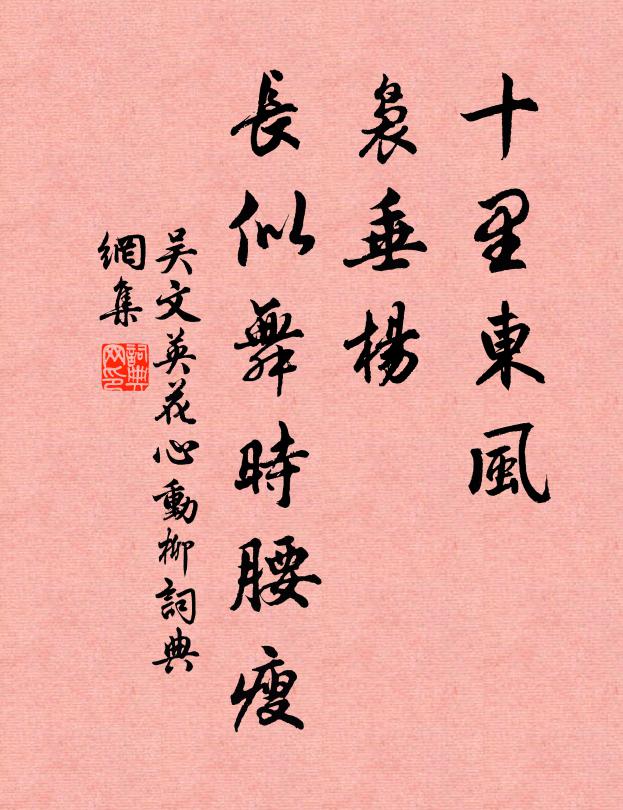 十里東風
裊垂楊
長似舞時腰瘦
吴文英花心動柳詞典
網集
詞典
网印